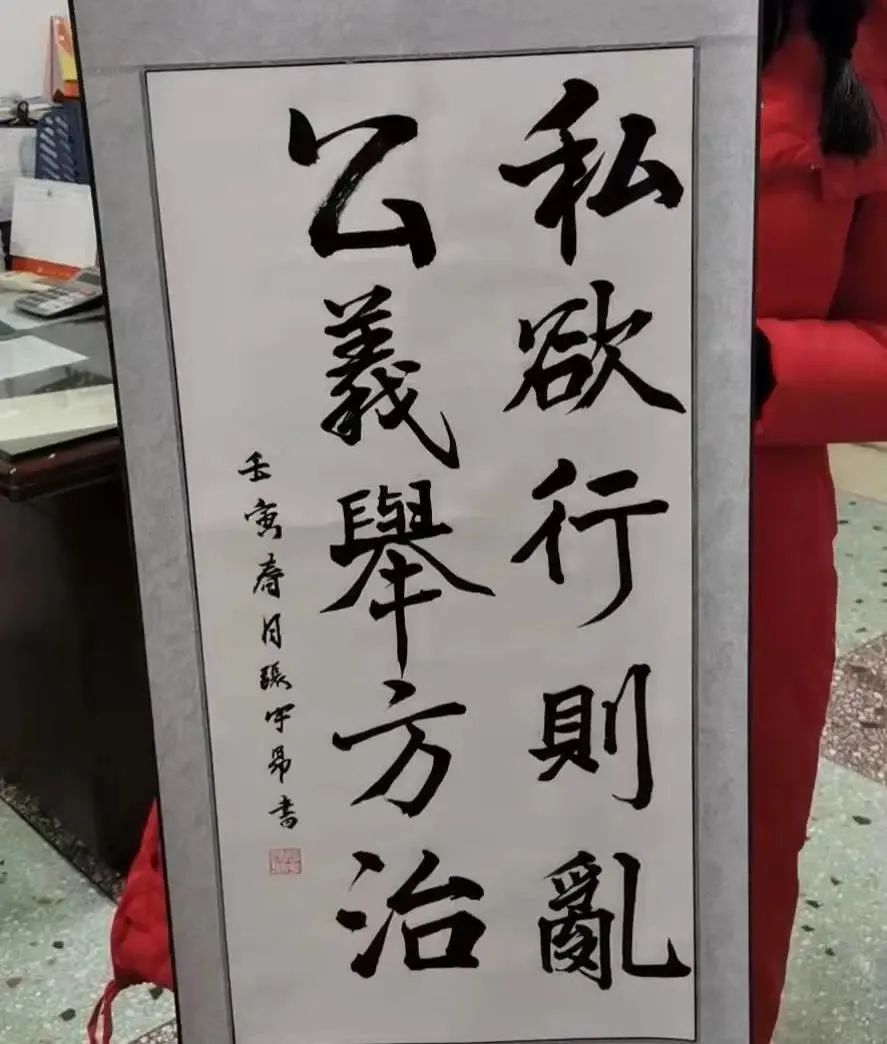 私欲行則亂
公義舉方治
壬寅春月張宇昂書